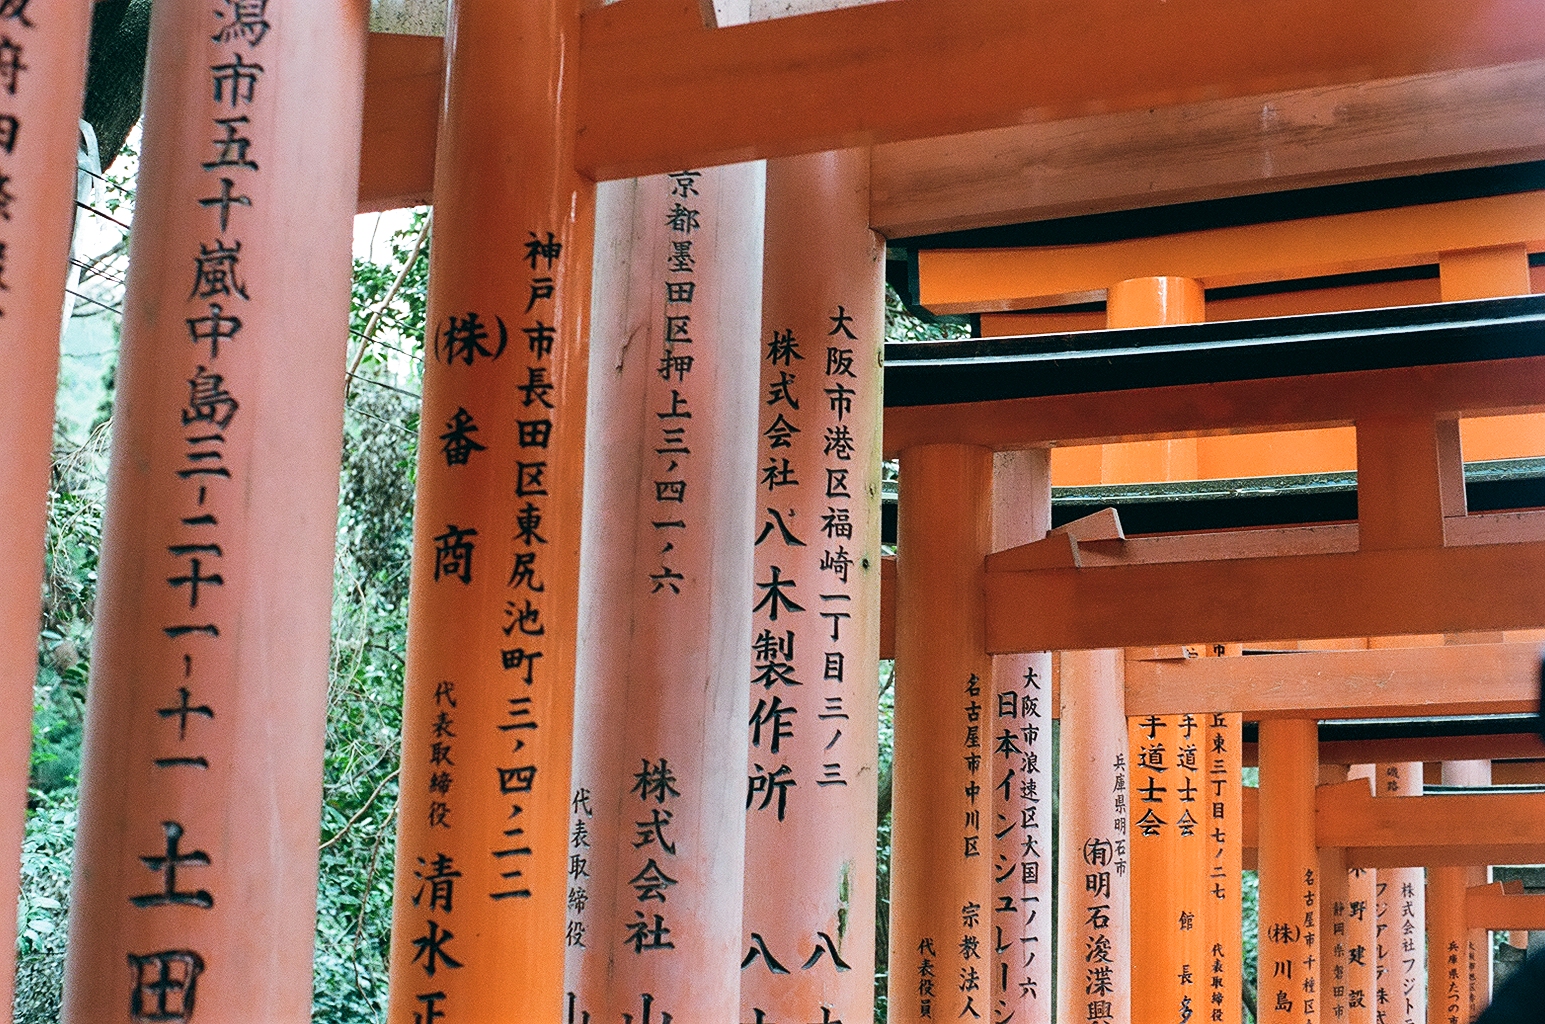 潟市五十嵐中島三-二十一-十一
土田
神戸市長田区東尻池町三ノ四ノ二二
(株)番商
代表取締役 清水正
京都墨田区押上三ノ四一ノ六
株式会社 山
代表取締役
大阪市港区福崎一丁目三ノ三
株式会社八木製作所
八木
八
名古屋市中川区 宗教法人
代表役員
大阪市浪速区大国一ノ一ノ六
日本インシュレーシ
兵庫県明石市
(有)明石浚渫興
丘東三丁目七ノ二七
代表取締役
手道士会
館長
手道士会
名古屋市千種区
(株)川島
静岡県磐田市
木野建設
磯路
フジアルテ株式
株式会社フジト
兵庫県たつの市